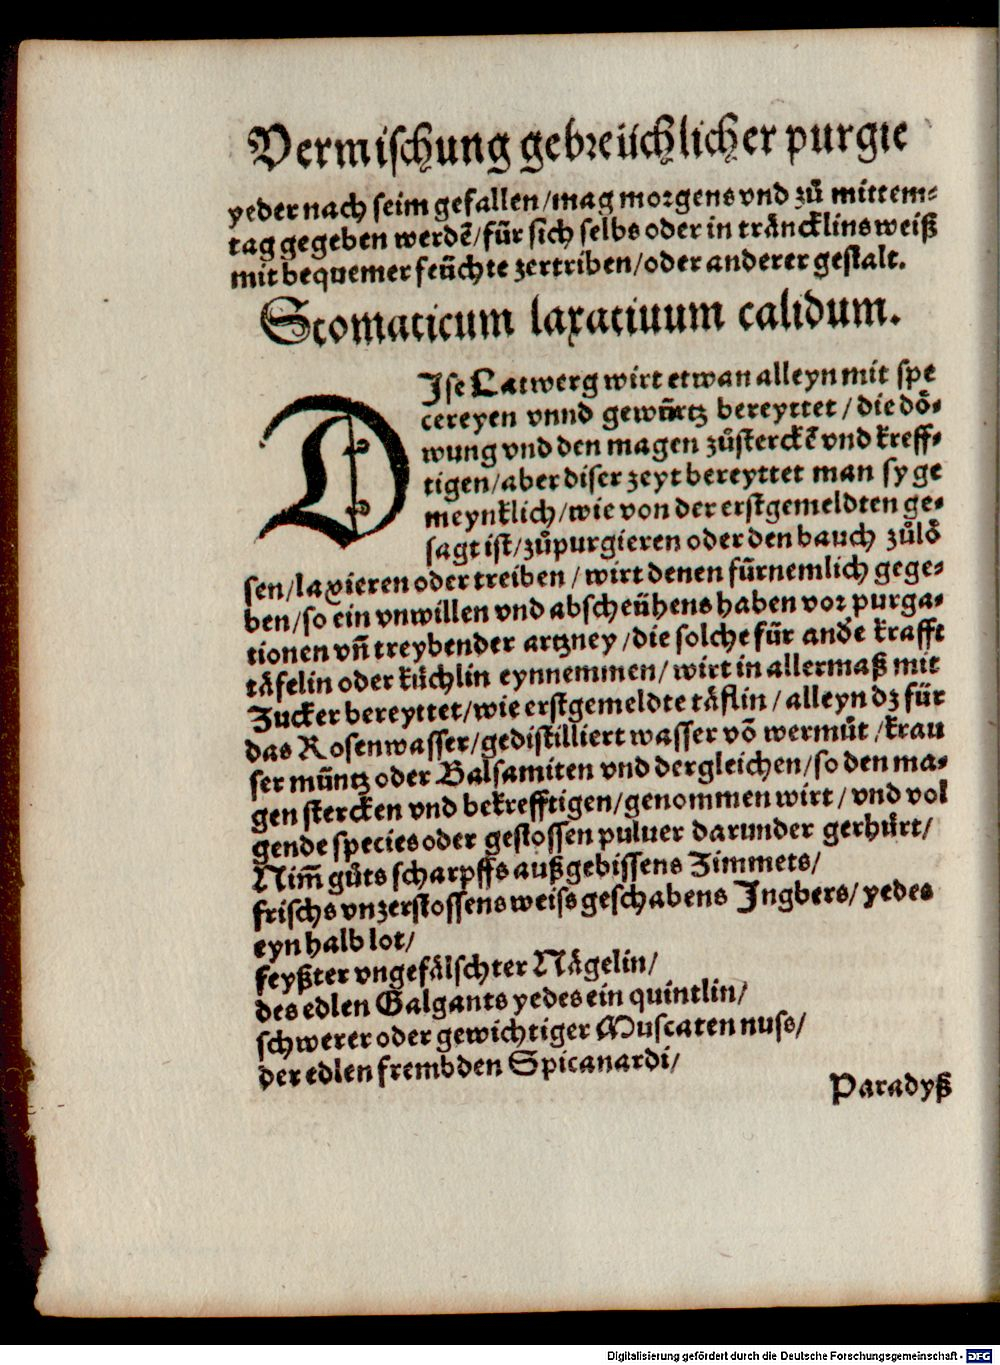 Vermischung gebreüchlicher purgie
yeder nach seim gefallen/mag morgens vnd zů mittem⸗
tag gegeben werdē/für sich selbs oder in träncklins weiß
mit bequemer feüchte zertriben/oder anderer gestalt.
Stomaticum laxatiuum calidum.
DIse Latwerg wirt etwan alleyn mit spe
cereyen vnnd gewürtz bereyttet/die dö⸗
wung vnd den magen zůsterckē vnd kreff⸗
tigen/aber diser zeyt bereyttet man sy ge
meynklich/wie von der erstgemeldten ge⸗
sagt ist/zůpurgieren oder den bauch zůlö
sen/laxieren oder treiben/wirt denen fürnemlich gege⸗
ben/so ein vnwillen vnd abscheühens haben vor purga⸗
tionen vñ treybender artzney/die solche für ande krafft
täfelin oder küchlin eynnemmen/wirt in allermaß mit
Zucker bereyttet/wie erstgemeldte täflin/alleyn dz für
das Rosenwasser/gedistilliert wasser võ wermůt/krau
ser müntz oder Balsamiten vnd dergleichen/so den ma⸗
gen stercken vnd bekrefftigen/genommen wirt/vnd vol
gende species oder gestossen puluer darunder gerhürt/
Nim̃ gůts scharpffs außgebissens Zimmets/
frischs vnzerstossens weiss geschabens Jngbers/yedes
eyn halb lot/
feyßter vngefälschter Nägelin/
des edlen Galgants yedes ein quintlin/
schwerer oder gewichtiger Muscaten nuss/
der edlen frembden Spicanardi/
Paradyß
Digitalisierung gefördert durch die Deutsche Forschungsgemeinschaft - DFG